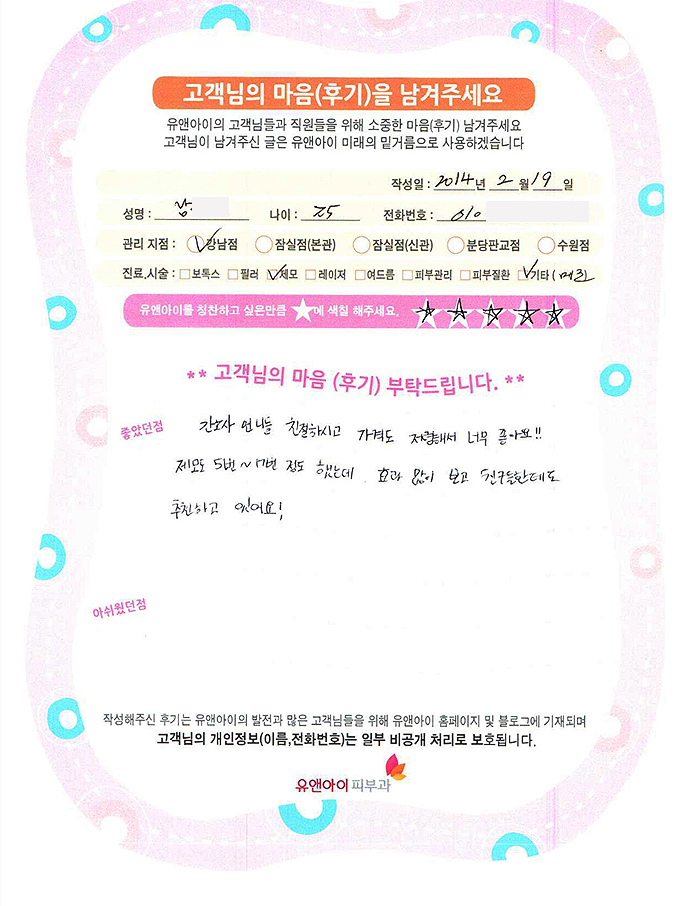 고객님의 마음(후기)을 남겨주세요
유앤아이의 고객님들과 직원들을 위해 소중한 마음(후기) 남겨주세요
고객님이 남겨주신 글은 유앤아이 미래의 밑거름으로 사용하겠습니다
작성일 : 2014년 2월 19일
성명 : 남. 나이 : 25 전화번호 : 010
관리 지점 : 강남점 잠실점(본관) 잠실점(신관) 분당판교점 수원점
진료.시술 : 보톡스 필러 제모 레이저 여드름 피부관리 피부질환 기타 (
유앤아이를 칭찬하고 싶은만큼 ★에 색칠 해주세요.
** 고객님의 마음 (후기) 부탁드립니다. **
좋았던점
간호사 언니들 친절하시고 가격도 저렴해서 너무 좋아요!!
제모도 5번~ 정도 했는데 효과 많이 보고 친구들한테도
추천하고 있어요!
아쉬웠던점
작성해주신 후기는 유앤아이의 발전과 많은 고객님들을 위해 유앤아이 홈페이지 및 블로그에 기재되며
고객님의 개인정보(이름,전화번호)는 일부 비공개 처리로 보호됩니다.
유앤아이 피부과